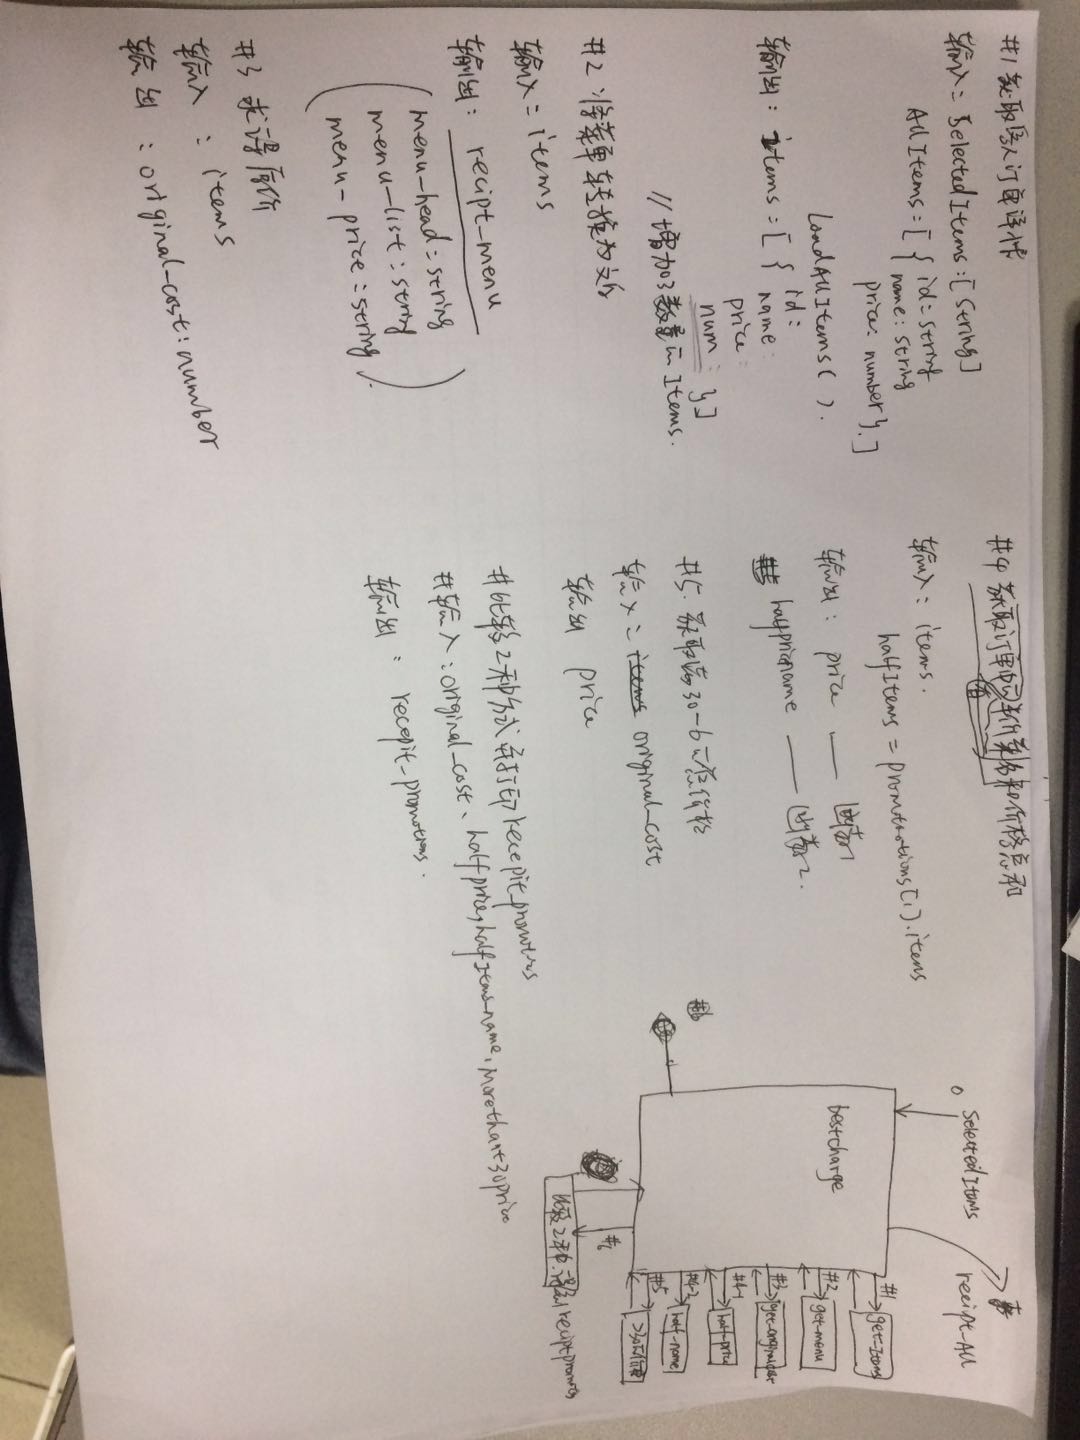 #1 获取客人订单详情
输入：SelectedItems:[string]
AllItems:[ { id:string
name:string
price: number }, ]
LoadAllItems().
输出：items=[ { id:
name:
price:
num: } ]
//增加3数量的Items.
#2
输入：items
输出：recipt_menu
menu-head:string
menu-list:string
menu-price:string
#3 求得原价
输入：items
输出：original_cost:number
#4
输入：items.
halfItems = promotions[1].items
输出：price —— 函数1
halfpricename —— 函数2.
#5. 获取满30-6
输入：items original_cost
输出 price
#6比较2种方式并打印recepit_promotions
#输入：original_cost、halfprice,halfItems_name,Morethant30price
输出：recepit-promotions.
SelectedItems
recipt-All
bestcharge
#1
get-Items
#2
get-menu
#3
#4-1
half-price
#4-2
half-name
#5
#6
#6